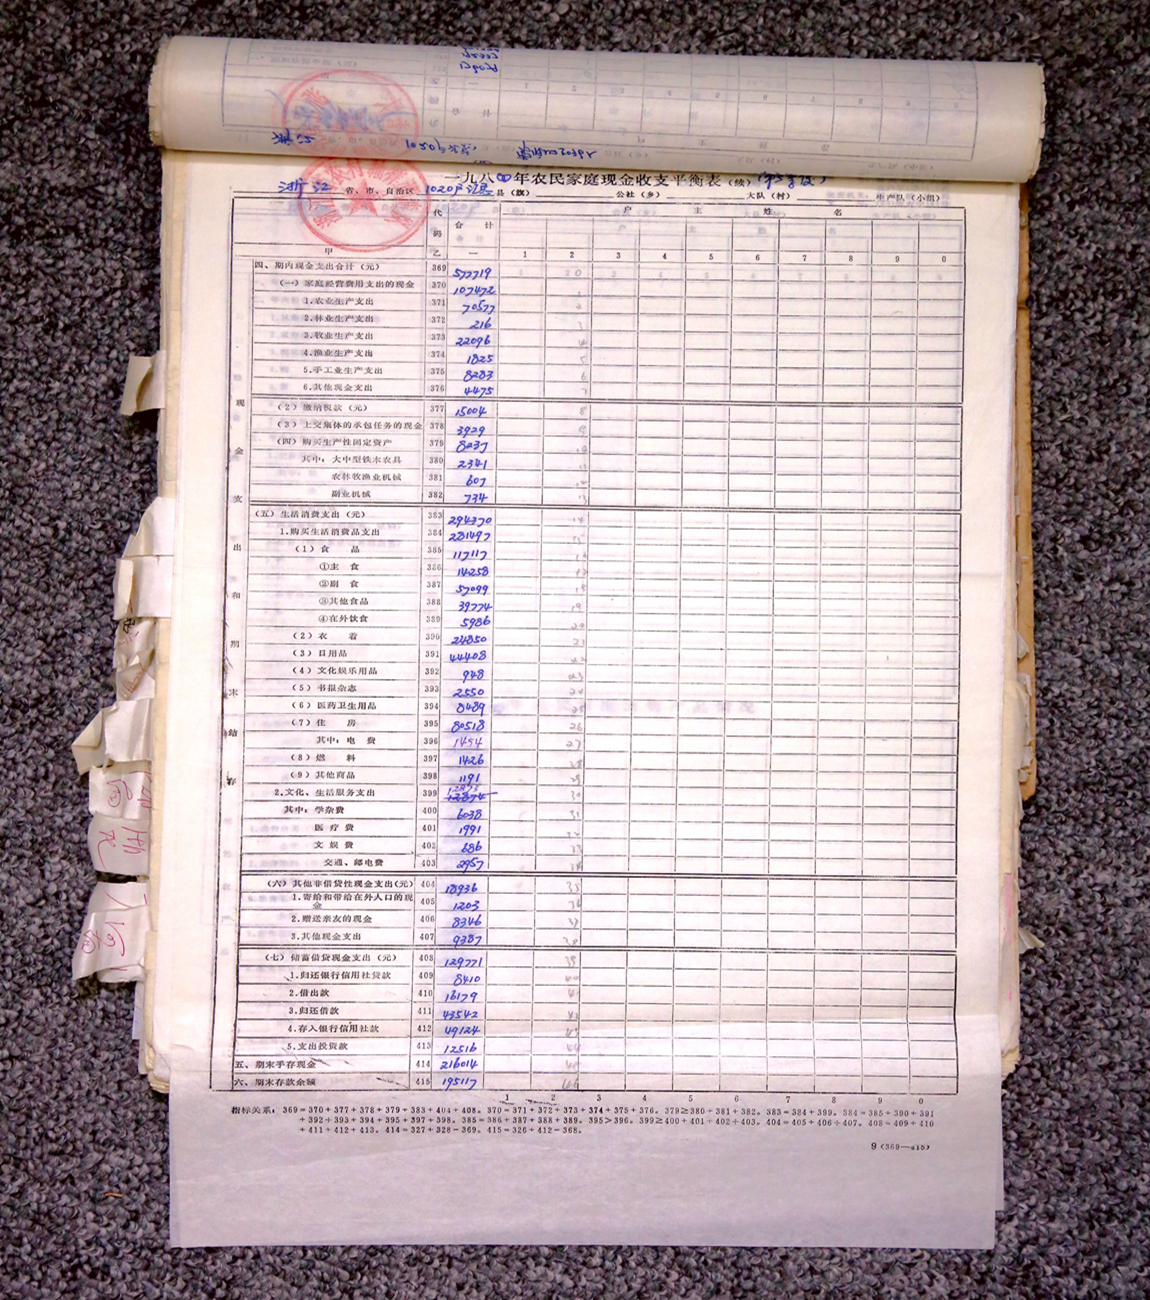 一九八 年农民家庭现金收支平衡表(续)
浙江 省、市、自治区 1020户 县(旗) 公社(乡) 大队(村) 生产队(小组)
代码 合计 户主姓名
甲 乙 一 1 2 3 4 5 6 7 8 9 0
现金支出和期末结存
四、期内现金支出合计(元) 369 577719
(一)家庭经营费用支出的现金 370 107472
1.农业生产支出 371 70577
2.林业生产支出 372 216
3.牧业生产支出 373 22096
4.渔业生产支出 374 1825
5.手工业生产支出 375 8283
6.其他现金支出 376 4475
(2)缴纳税款(元) 377 15004
(3)上交集体的承包任务的现金 378 3929
(四)购买生产性固定资产 379 8237
其中:大中型铁木农具 380 2341
农林牧渔业机械 381 607
副业机械 382 734
(五)生活消费支出(元) 383 294370
1.购买生活消费品支出 384 281497
(1)食 品 385 117117
①主 食 386 14258
②副 食 387 57099
③其他食品 388 39774
④在外饮食 389 5986
(2)衣 着 390 24850
(3)日用品 391 44408
(4)文化娱乐用品 392 948
(5)书报杂志 393 2550
(6)医药卫生用品 394 8489
(7)住 房 395 80518
其中:电 费 396 1454
(8)燃 料 397 1426
(9)其他商品 398 1191
2.文化、生活服务支出 399 12873
其中:学杂费 400 6038
医疗费 401 1991
文娱费 402 686
交通、邮电费 403 2957
(六)其他非借贷性现金支出(元) 404 18936
1.寄给和带给在外人口的现金 405 1203
2.赠送亲友的现金 406 8346
3.其他现金支出 407 9387
(七)储蓄借贷现金支出(元) 408 129771
1.归还银行信用社贷款 409 8410
2.借出款 410 16179
3.归还借款 411 43542
4.存入银行信用社款 412 49124
5.支出投资款 413 12516
五、期末手存现金 414 216014
六、期末存款余额 415 195117
1 2 3 4 5 6 7 8 9 0
指标关系:369=370+377+378+379+383+404+408。370=371+372+373+374+375+376。379≥380+381+382。383=384+399。384=385+390+391
+392+393+394+395+397+398。385=386+387+388+389。395>396。399≥400+401+402+403。404=405+406+407。408=409+410
+411+412+413。414=327+328-369。415=326+412-368。
9(369—415)